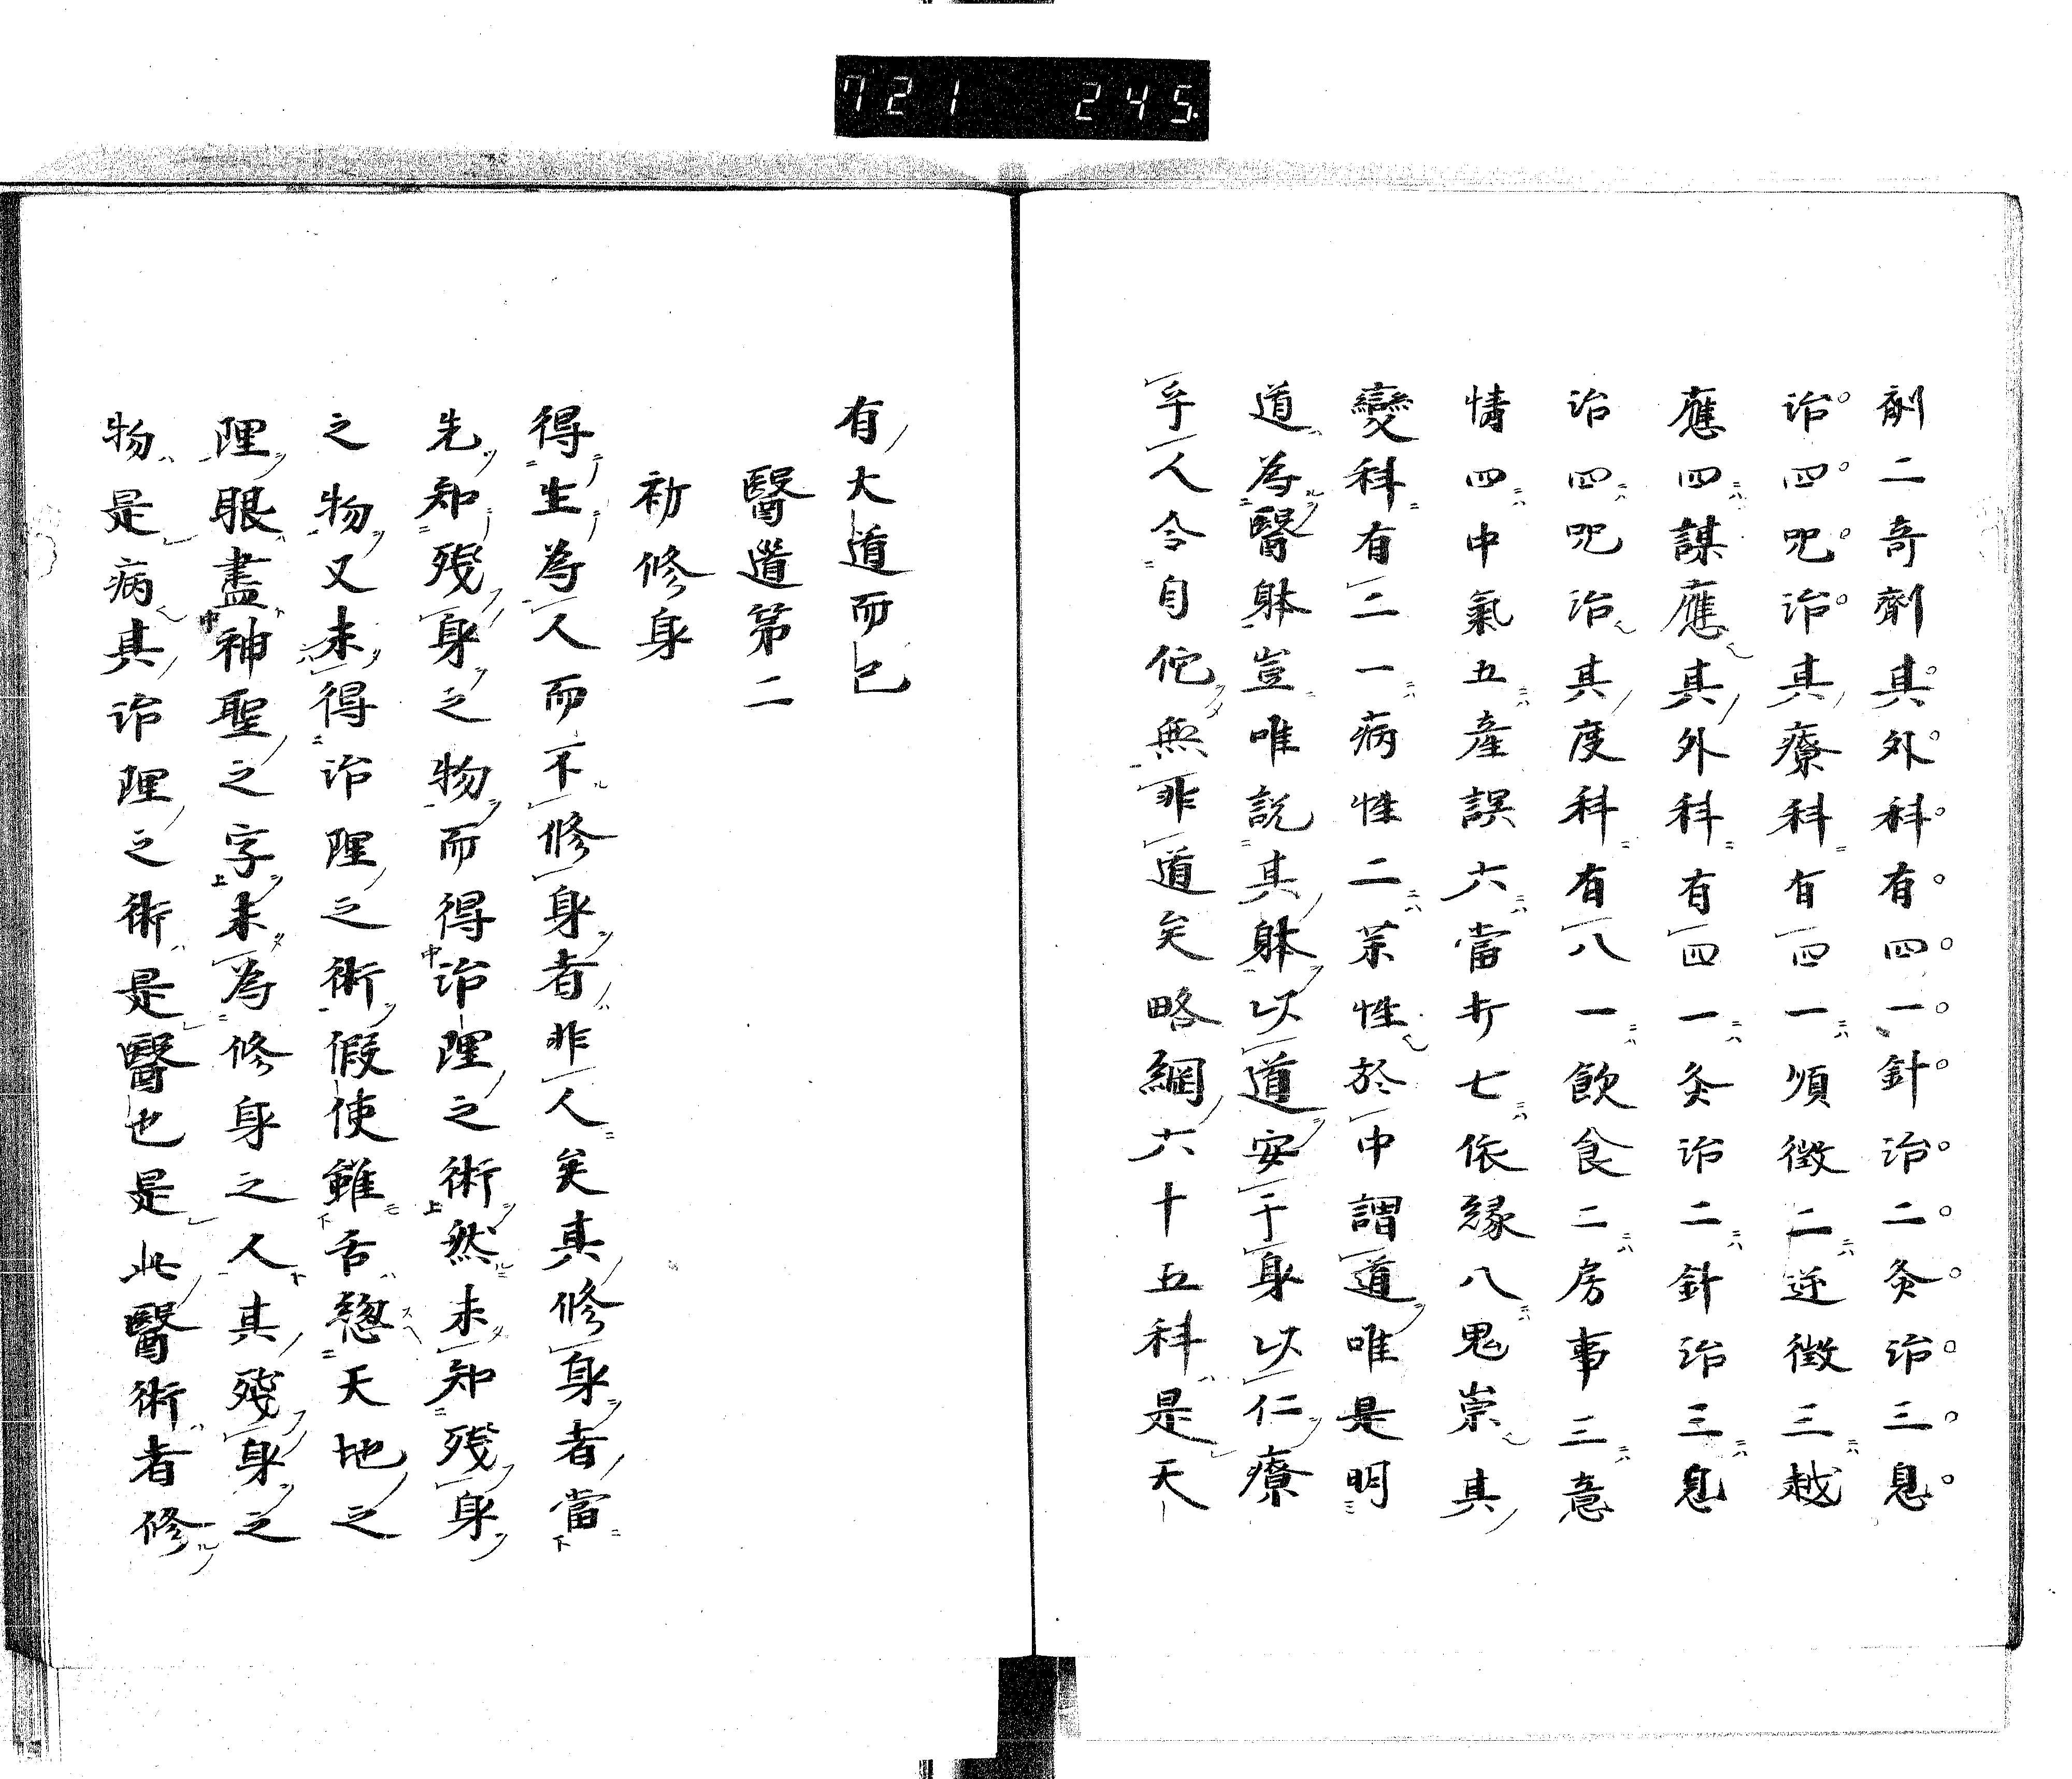 721 245
劑二奇劑其外科有四一針治二灸治三息
治四呪治其療科有四一順徴二逆徴三越
應四謀應其外科有四一灸治二針治三息
治四呪治其度科有八一飲食二房事三意
情四中氣五產誤六當才七依緣八鬼崇其
變科有二一病性二茶性於中謂道唯是明
道為醫躰豈唯説其躰以道安于身以仁療
乎人令自佗無非道矣略網六十五科是天
有大道而已
醫道第二
初修身
得生為人而不修身者非人矣其修身者當
先知殘身之物而得治理之術然未知殘身
之物又未得治理之術假使雖舌㹅天地之
理眼盡神聖之字未為修身之人其殘身之
物是病其治理之術是醫也是此醫術者修